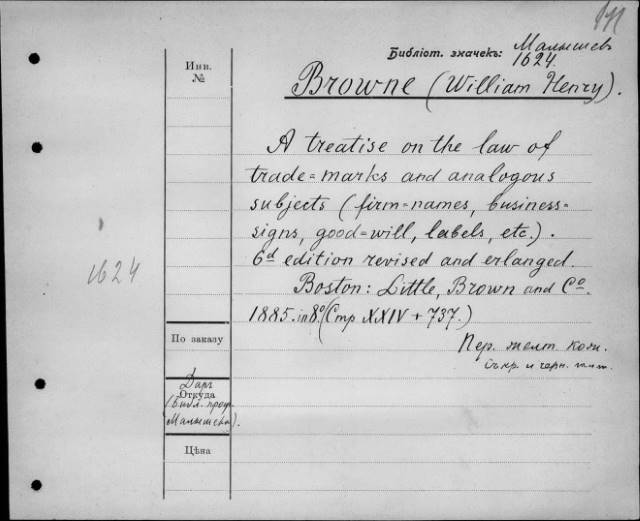 Библіот. значекъ: Малышев
1624.
Инв.
№
Browne (William Henry).
A treatise on the law of
trade=marks and analogous
subjects (firm=names, business=
signs, good=will, labels, etc.).
6d edition revised and erlanged.
1624
Boston: Little, Brown and Co.
1885. in 8o (Стр XXIV + 737.)
По заказу
Пер. желт. кож.
съ кр. и черн.
Даръ
Откуда
(Библ. проф.
Малышева).
Цѣна